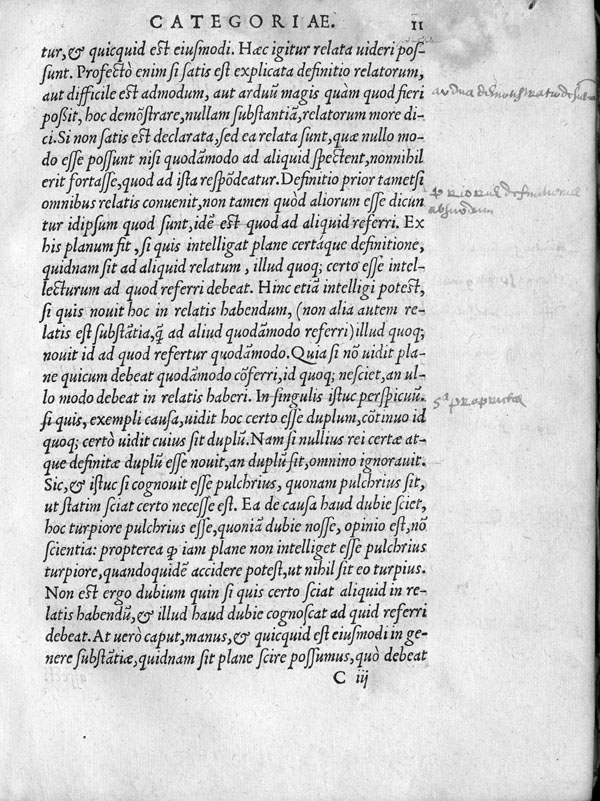 CATEGORIAE. 11
tur, & quicquid est eiusmodi. Haec igitur relata uideri pos-
sunt. Profectò enim si satis est explicata definitio relatorum,
aut difficile est admodum, aut arduū magis quàm quod fieri
poßit, hoc demōstrare, nullam substantiā, relatorum more di-
ci. Si non satis est declarata, sed ea relata sunt, quæ nullo mo-
do esse possunt nisi quodāmodo ad aliquid spectent, nonnihil
erit fortasse, quod ad ista respōdeatur. Definitio prior tametsi
omnibus relatis conuenit, non tamen quòd aliorum esse dicun
tur idipsum quod sunt, idē est quod ad aliquid referri. Ex
his planum fit, si quis intelligat plane certáque definitione,
quidnam sit ad aliquid relatum, illud quoq; certo esse intel-
lecturum ad quod referri debeat. Hinc etiā intelligi potest,
si quis nouit hoc in relatis habendum, (non alia autem re-
latis est substātia, q̃ ad aliud quodāmodo referri) illud quoq;
nouit id ad quod refertur quodāmodo. Quia si nō uidit pla-
ne quicum debeat quodāmodo cōferri, id quoq; nesciet, an ul-
lo modo debeat in relatis haberi. In singulis istuc perspicuū.
si quis, exempli causa, uidit hoc certo esse duplum, cōtinuo id
quoq; certò uidit cuius sit duplū. Nam si nullius rei certæ at-
que definitæ duplū esse nouit, an duplū sit, omnino ignorauit.
Sic, & istuc si cognouit esse pulchrius, quonam pulchrius sit,
ut statim sciat certo necesse est. Ea de causa haud dubie sciet,
hoc turpiore pulchrius esse, quoniā dubie nosse, opinio est, nō
scientia: propterea ꝙ iam plane non intelliget esse pulchrius
turpiore, quandoquidē accidere potest, ut nihil sit eo turpius.
Non est ergo dubium quin si quis certo sciat aliquid in re-
latis habendū, & illud haud dubie cognoscat ad quid referri
debeat. At uerò caput, manus, & quicquid est eiusmodi in ge-
nere substātiæ, quidnam sit plane scire possumus, quò debeat
C iij